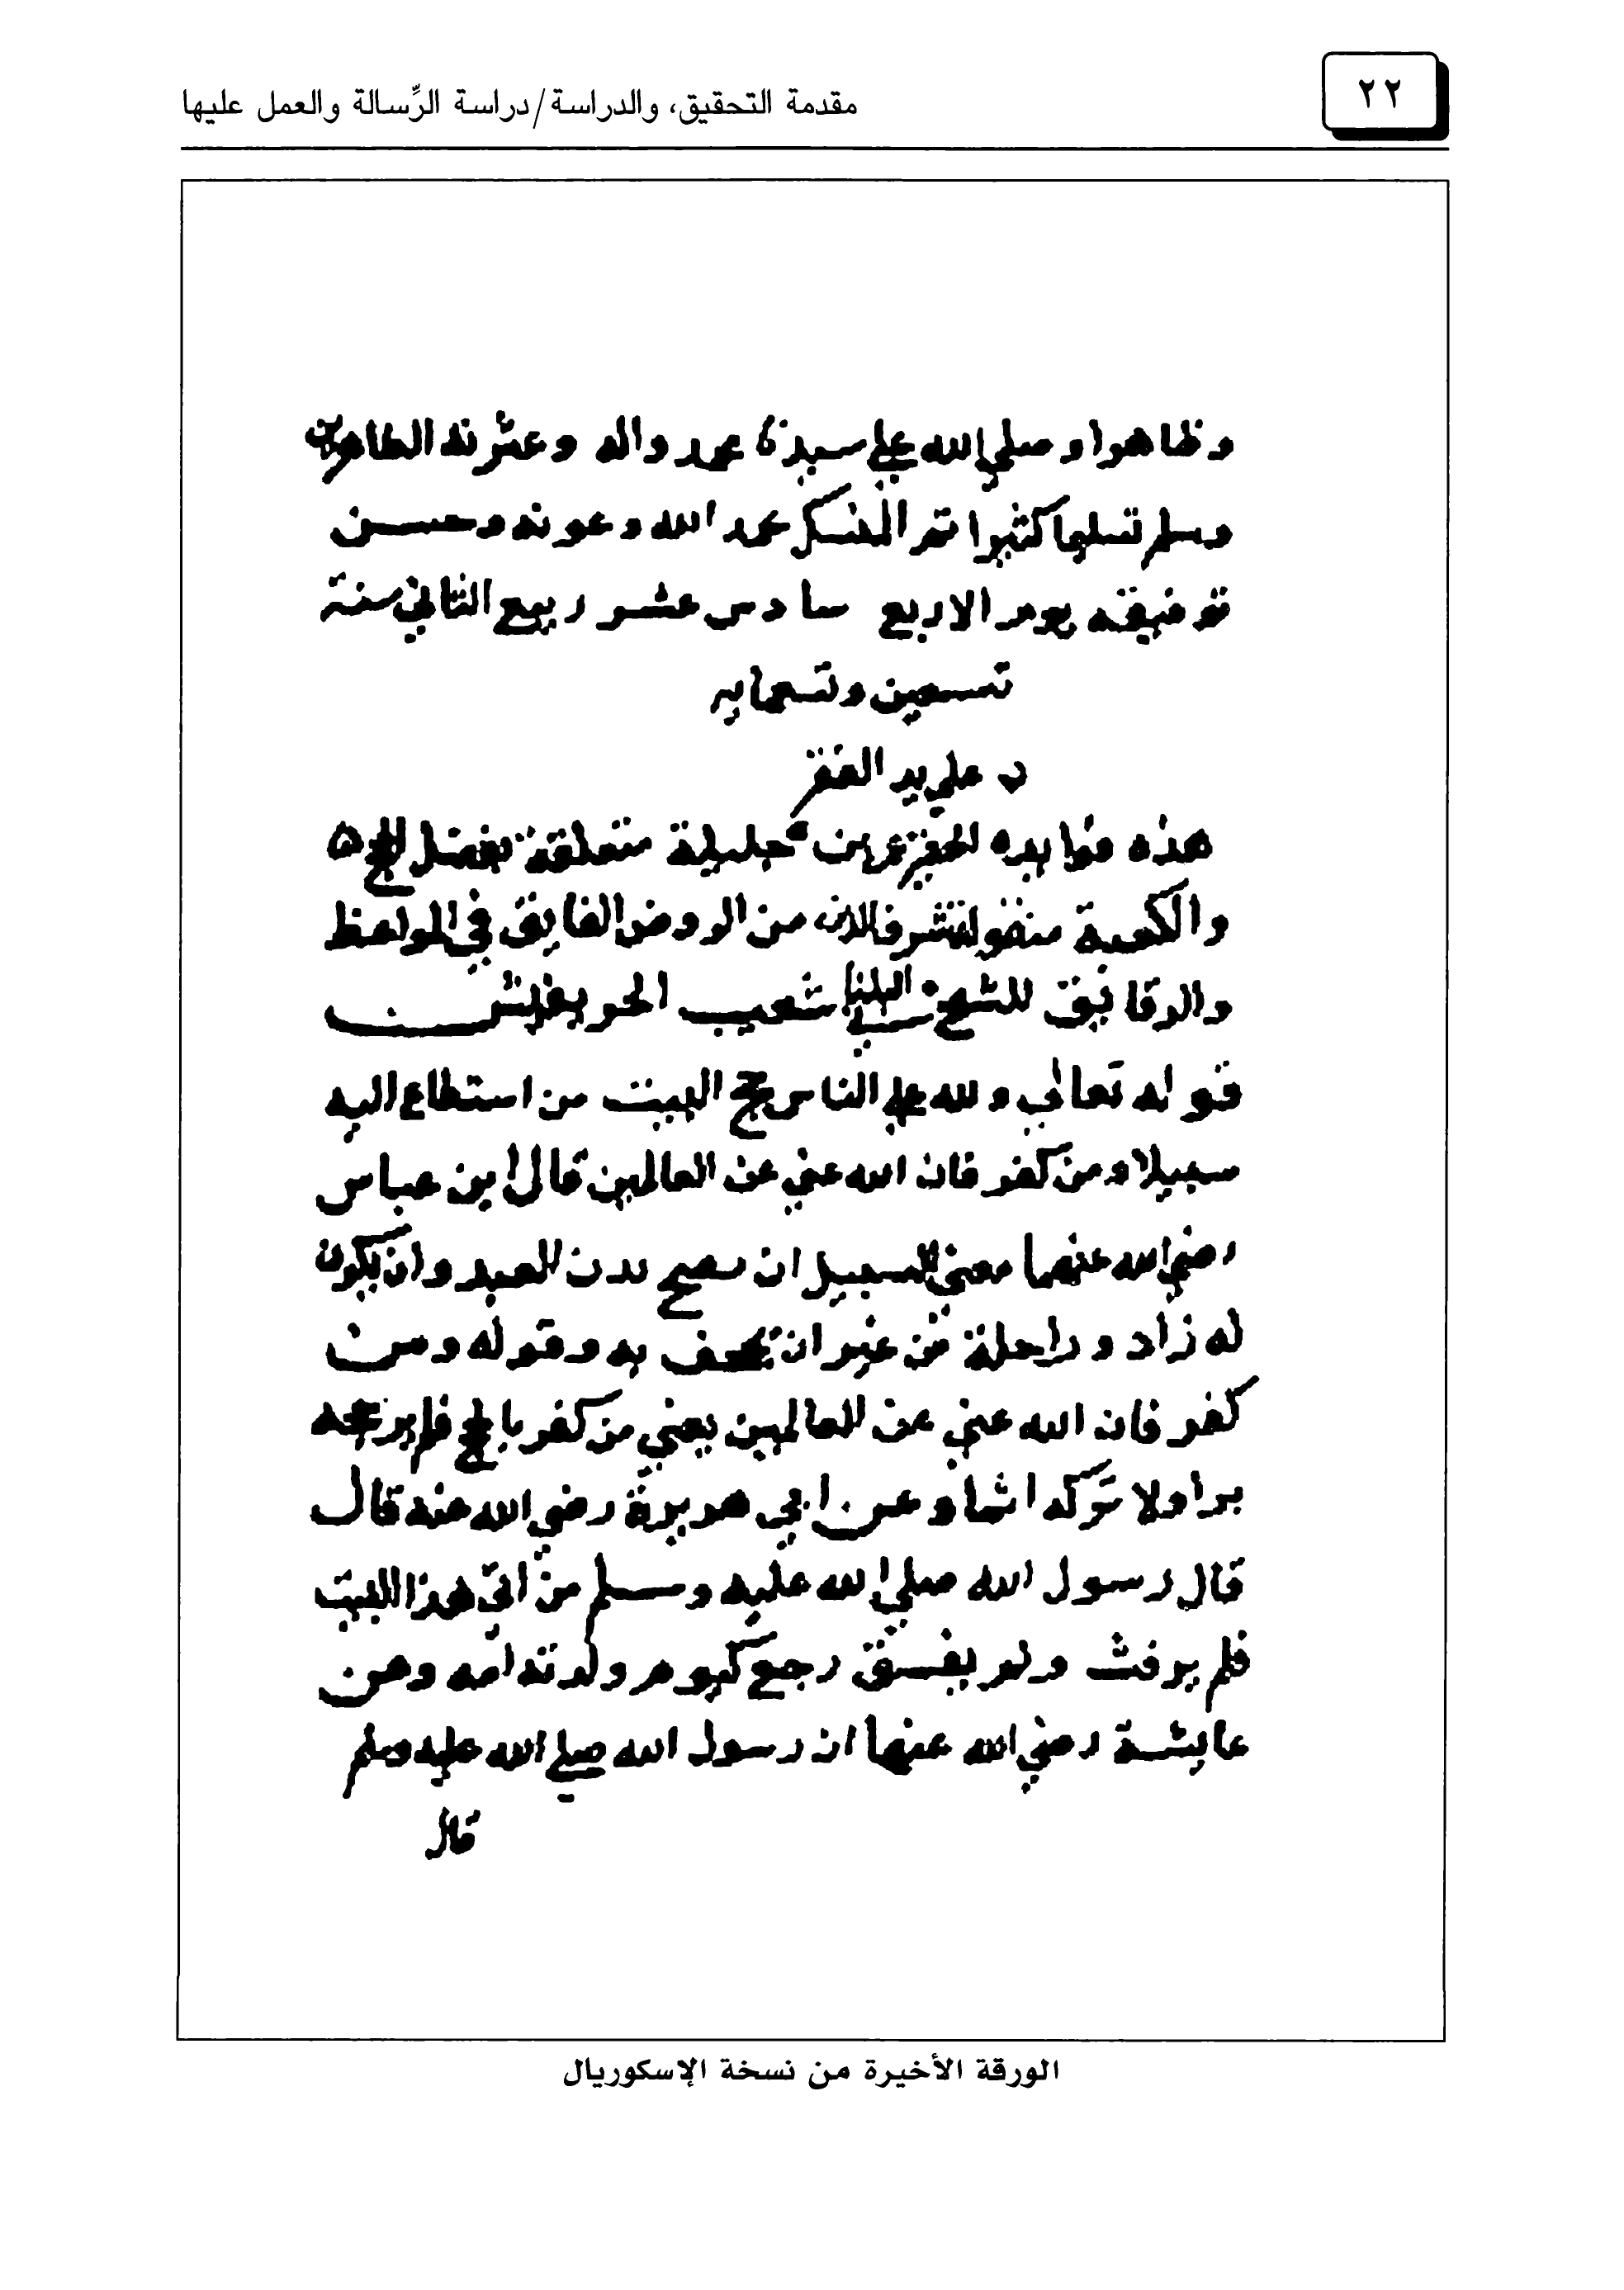 ٢٢
مقدمة التحقيق، والدراسة/دراسة الرِّسالة والعمل عليها
وظاهرا وصلي الله علي سيدنا محمد واله وعترته الطاهرين
وسلم تسليما كثيرا تم المنسك بحمد الله وعونه وحسن
توفيقه يوم الاربع سادس عشر ربيع الثاني سنة
تسعين وتسعمايه
علي يد الفقير
هذه فوايده جليلة متعلقة بفضل الحج
والكعبة من الروض الفايق في المواعظ
والرقايق للشيخ شعيب الحريفيش
قوله تعالي ولله علي الناس حج البيت من استطاع اليه
سبيلا ومن كفر فان الله غني عن العالمين قال ابن عباس
رضي الله عنهما معني السبيل ان يصح بدن العبد وان يكون
له زاد وراحلة من غير ان يجحف به وقوله ومن
كفر فان الله غني عن العالمين يعني من كفر بالحج فلم ير حجه
برا ولا تركه اثما وعن ابي هريرة رضي الله عنه قال
قال رسول الله صلي الله عليه وسلم من اتي هذا البيت
فلم يرفث ولم يفسق رجع كيوم ولدته امه وعن
عايشة رضي الله عنها ان رسول الله صلي الله عليه وسلم
قال
الورقة الأخيرة من نسخة الإسكوريال